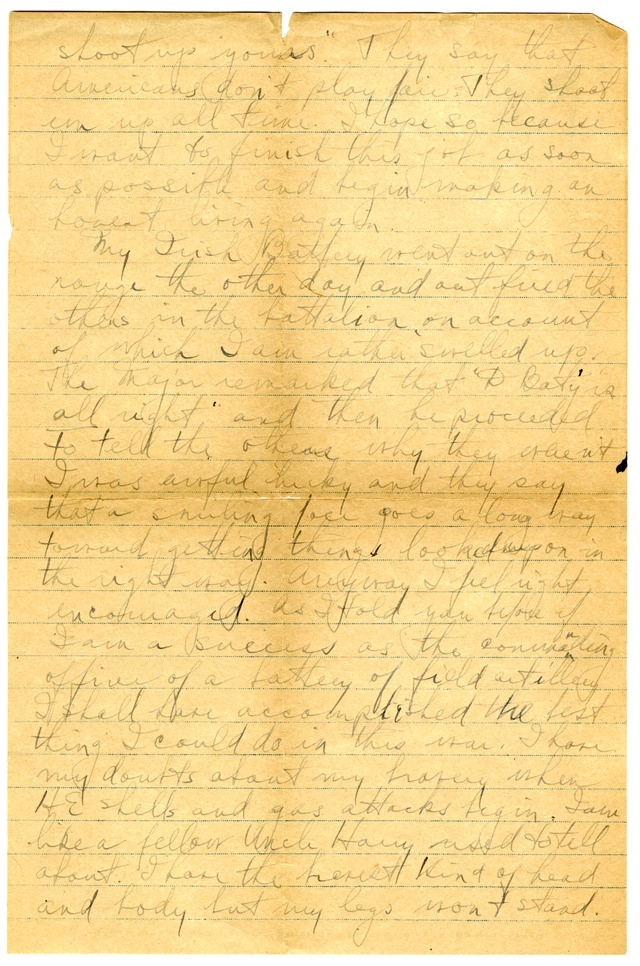 shoot up yours". They say that
Americans don't play fair. They shoot
'em up all time. I hope so because
I want to finish this job as soon
as possible and begin making an
honest living again.
My Irish Battery went out on the
range the other day and out fired the
others in the battalion, on account
of which I am rather swelled up.
The Major remarked that "D Baty is
all right" and then he proceeded
to tell the others why they weren't
I was awful lucky and they say
that a smiling face goes a long way
toward getting things looked upon in
the right way. Anyway I feel right
encouraged. As I told you before if
I am a success as the commading
officer of a battery of field artillery
I shall have accomplished the best
thing I could do in this war. I have
my doubts about my bravery when
HE shells and gas attacks begin. I am
like a fellow Uncle Harry used to tell
about. I have the bravest kind of head
and body but my legs won't stand.